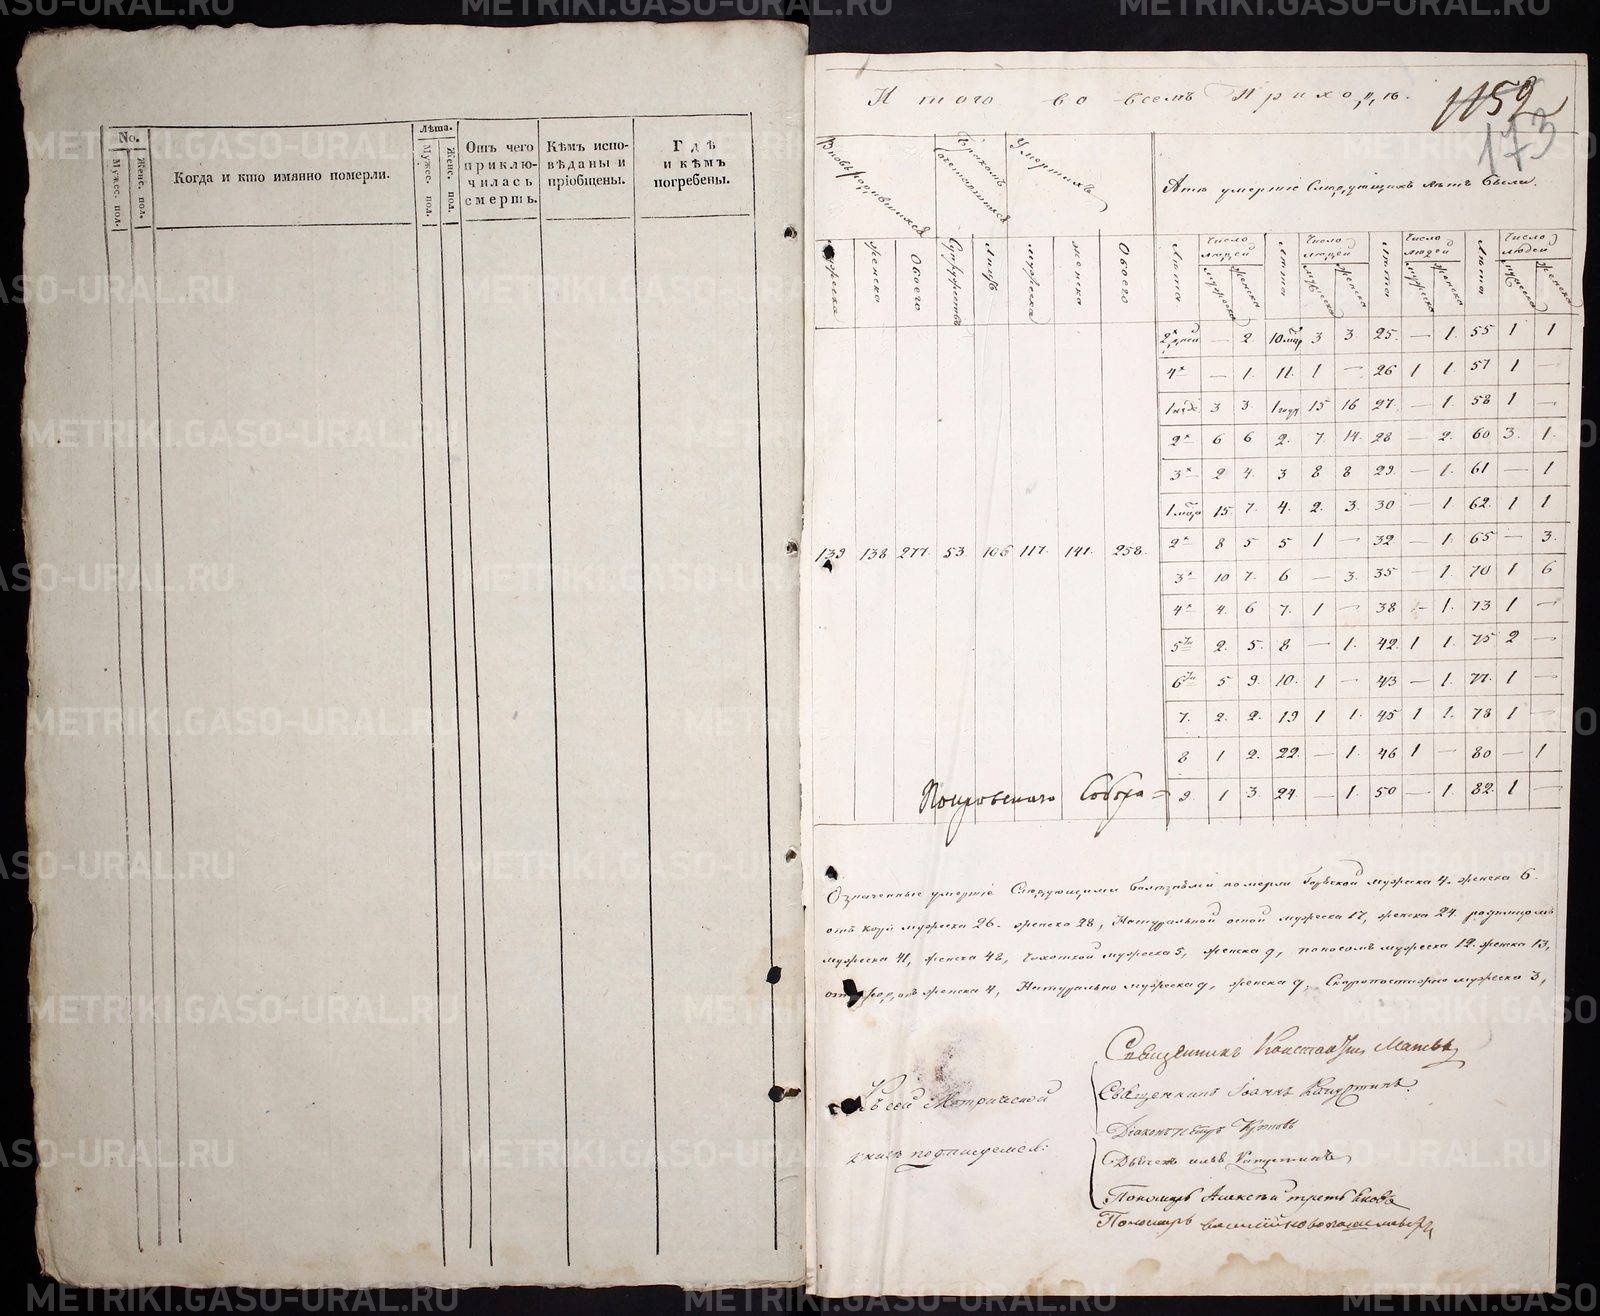 METRIKI.GASO-URAL.RU
No.
Мужес. пол.
Женс. пол.
Когда и кто имянно померли.
Лѣта.
Мужес. пол.
Женс. пол.
Отъ чего
приклю-
чилась
смерть.
Кѣмъ испо-
вѣданы и
пріобщены.
Гдѣ
и кѣмъ
погребены.
Итого во всемъ Приходѣ.
1152
173
Умершихъ
Лѣта умершіе слѣдующихъ лѣтъ были.
мужеска
женска
Обоего
Супружествъ
Лицъ
мужеска
женска
Обоего
Лѣта
Число людей
мужеска
женска
Лѣта
Число людей
мужеска
женска
Лѣта
Число людей
мужеска
женска
Лѣта
Число людей
мужеска
женска
2хъ дней — 2. 10 мѣс 3 3. 25. — 1. 55 1 1
4хъ — 1. 11. 1 — 26 1 1. 57 1 —
1 нед 3 3. 1 году 15 16 27. — 1. 58 1 —
2хъ 6 6 2. 7. 14. 28 — 2. 60 3. 1.
3хъ 2 4. 3 8 8 29. — 1. 61 — 1
1 мѣся 15 7. 4. 2. 3. 30 — 1 62. 1 1
139 138 277. 53. 106 117. 141. 258. 2хъ 8 5 5 1 — 32 — 1. 65 — 3.
3хъ 10 7. 6 — 3. 35 — 1. 70 1 6
4хъ 4. 6 7. 1 — 38 — 1. 73 1 —
5ти 2. 5. 8 — 1. 42. 1 1. 75 2 —
6ти 5 9. 10. 1 — 43 — 1. 77. 1 —
7. 2. 2. 19 1 1. 45 1 1. 78 1 —
8 1 2. 22. — 1. 46 1 — 80 — 1
Покровскаго Собора = 9. 1 3. 24. — 1. 50 — 1. 82. 1 —
Означенные умершіе Слѣдующими болезнями померли мужеска 4. женска 6.
отъ мужеска 26. женска 28, Натуральной оспой мужеска 17, женска 24. родимцомъ
мужеска 41, женска 48, Чахоткой мужеска 5, женска 9, поносомъ мужеска 12. женска 13,
женска 4, Натурально мужеска 9, женска 9, Скоропостижно мужеска 3,
Къ сей Метрической
книгѣ подписуемся:
Священникъ Константинъ
Священникъ Іоаннъ Капустинъ.
Діаконъ Петръ
Дьячекъ Капустинъ
Пономарь Алексѣй Третьяковъ
Пономарь василій